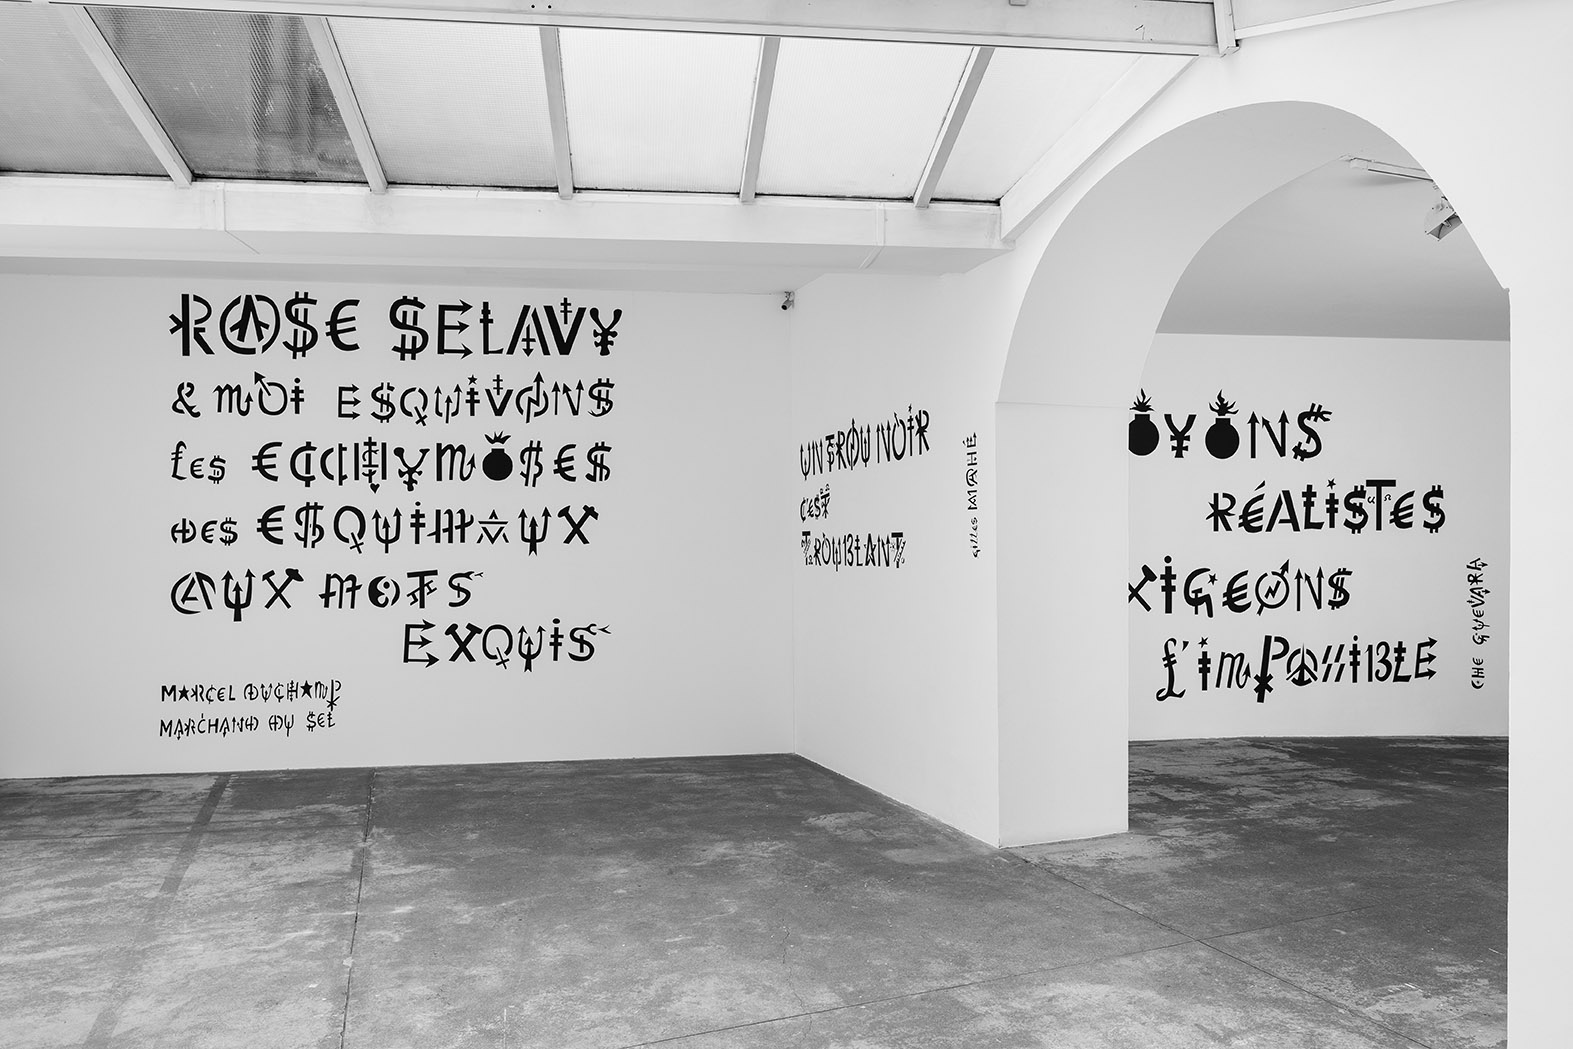 ROSE SELAVY
& MOI ESQUIVONS
LES ECCHYMOSES
DES ESQUIMAUX
AUX MOTS
EXQUIS
MARCEL DUCHAMP
MARCHAND DU SEL
UN TROU NOIR
C'EST
TROUBLANT
GILLES MAHÉ
OYONS
RÉALISTES
XIGEONS
L'IMPOSSIBLE
CHE GUEVARA